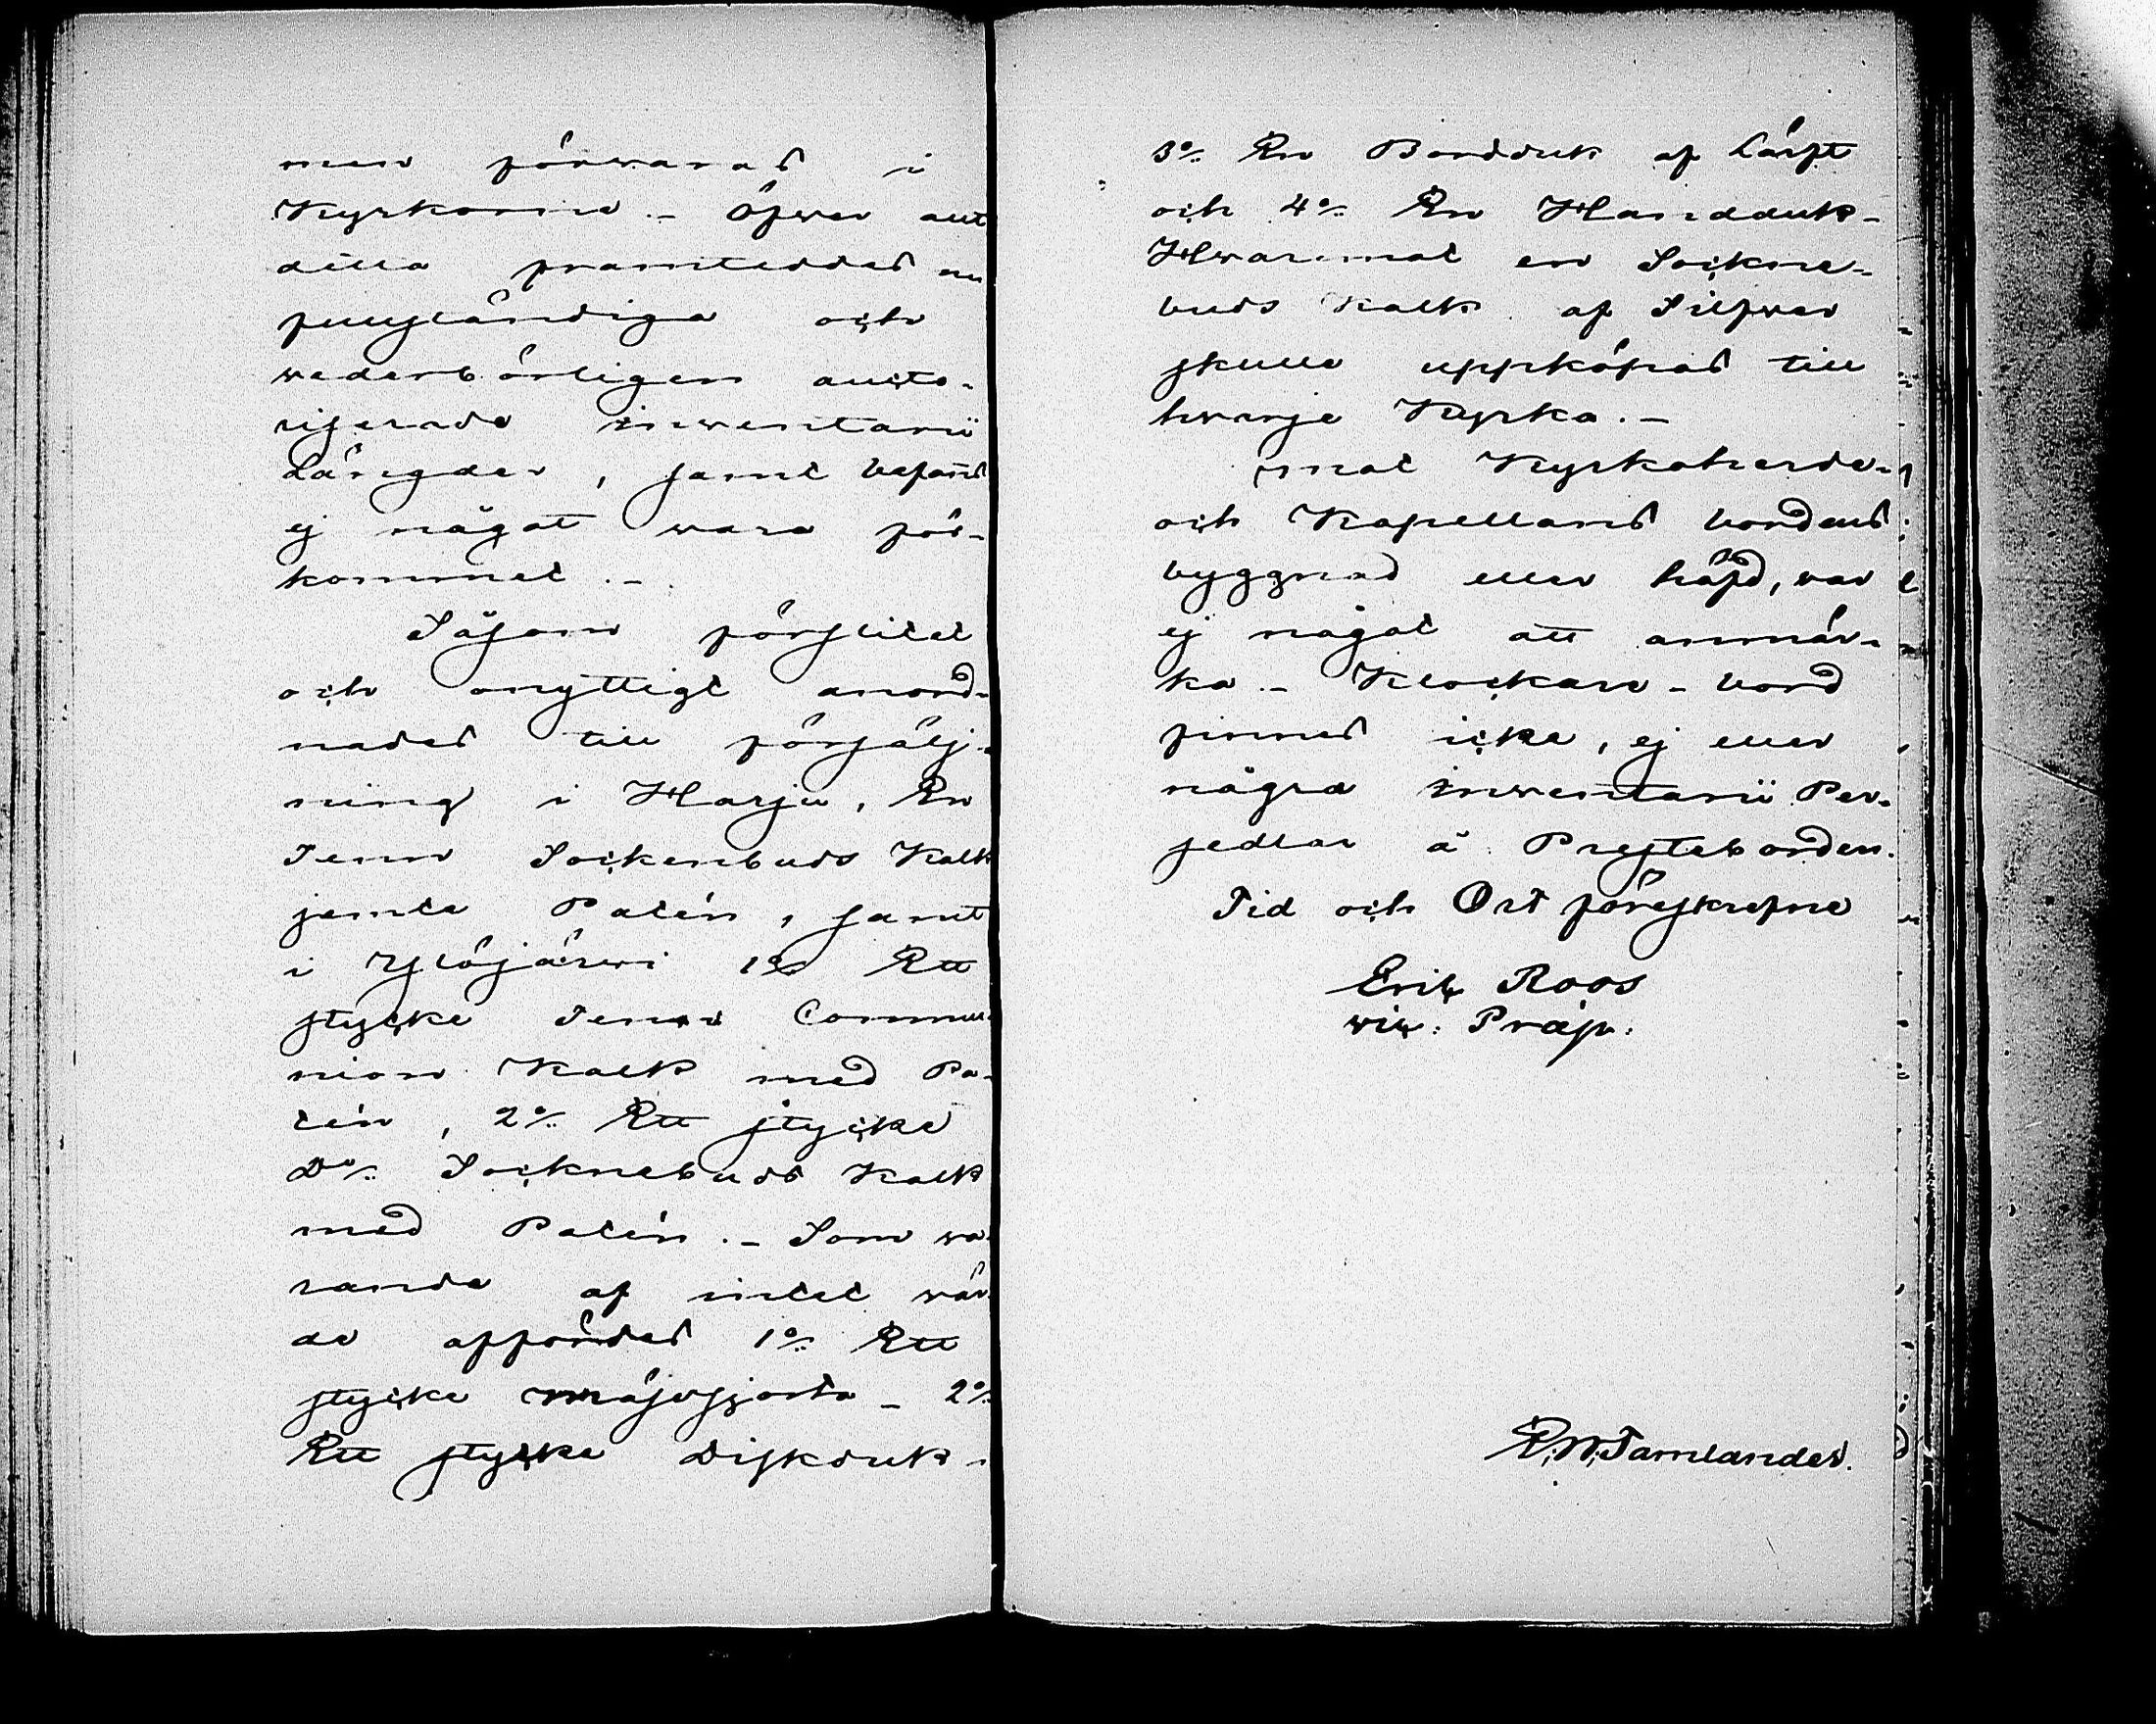 men förvaras i
Kyrkorne. – Öfver allt
detta framteddes en
fullständiga och
wederbörligen aucto-
riserade Inventarii
Längder, samt befans
ej något wara för-
kommet. –
Såsom förslitet
och onyttigt anord-
nades till försälj-
ning i Harju, En
Tenn Sockenbuds Kalk
jemte Patén, samt
i Ylöjärwi 1o/. Ett
stycke Tenn Commu-
nion Kalk med Pa-
tén, 2o/. Ett stycke
Do/. Socknebuds Kalk
med Patén. – Som wa-
rande af intet wär-
de affördes 1o/. Ett
stycke Mässsjorta – 2o/.
Ett stycke Diskduk –
3o/. En Bordduk af Lärft
och 4o/. En Handduk –
Hwaremot en Sockne-
buds Kalk af Silfver
skulle uppköpas till
hvarje Kyrka. –
Emot Kyrkoherde-
och Kapellans bordens
byggnad eller häfd, var
ej något att anmär-
ka. – Klockare-bord
finnes icke, ej eller
några Inventarii Per-
sedlar å Presteborden.
Tid och Ort föreskrefne
Eric Roos
vic: Præp:
E. W. Tamlander.